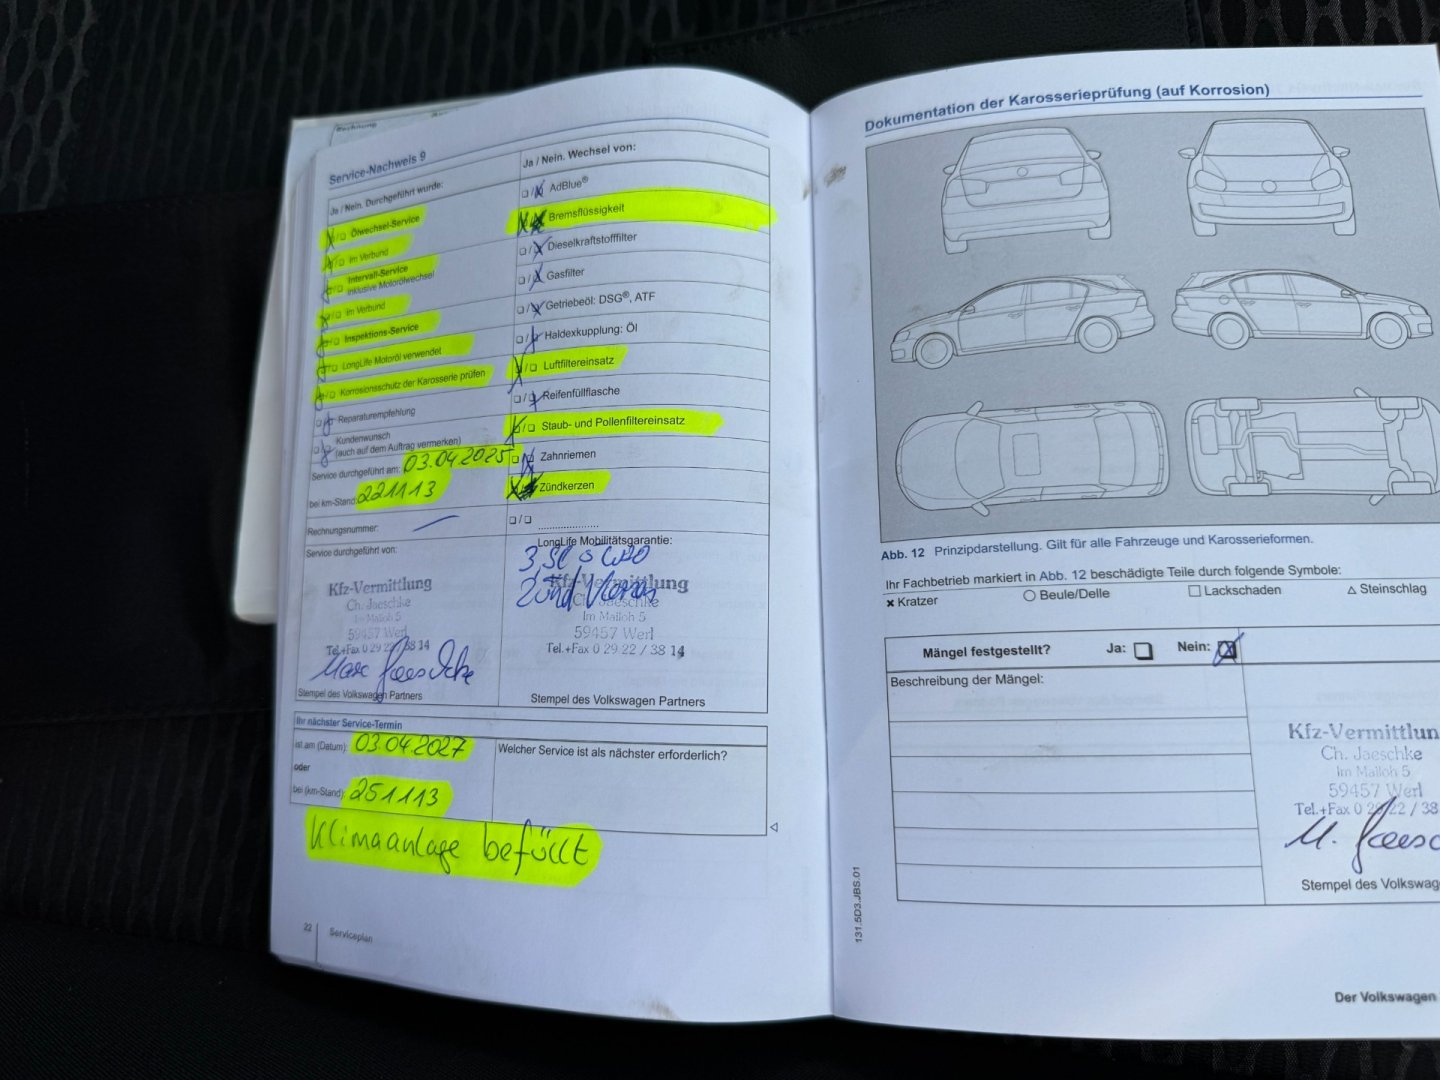 Rechnung
Service-Nachweis 9
Ja / Nein. Durchgeführt wurde:
Ölwechsel-Service
Im Verbund
Intervall-Service
inklusive Motorölwechsel
Im Verbund
Inspektions-Service
LongLife Motoröl verwendet
Korrosionsschutz der Karosserie prüfen
Reparaturempfehlung
Kundenwunsch
(auch auf dem Auftrag vermerken)
Service durchgeführt am: 03.04.2025
bei km-Stand: 221113
Rechnungsnummer:
Service durchgeführt von:
Kfz-Vermittlung
Ch. Jaeschke
Im Mailoh 5
59457 Werl
Tel.+Fax 0 29 22 / 38 14
Stempel des Volkswagen Partners
Ja / Nein. Wechsel von:
AdBlue®
Bremsflüssigkeit
Dieselkraftstofffilter
Gasfilter
Getriebeöl: DSG®, ATF
Haldexkupplung: Öl
Luftfiltereinsatz
Reifenfüllflasche
Staub- und Pollenfiltereinsatz
Zahnriemen
Zündkerzen
LongLife Mobilitätsgarantie:
Kfz-Vermittlung
Ch. Jaeschke
Im Mailoh 5
59457 Werl
Tel.+Fax 0 29 22 / 38 14
Stempel des Volkswagen Partners
Ihr nächster Service-Termin
ist am (Datum): 03.04.2027
oder
bei (km-Stand): 251113
Welcher Service ist als nächster erforderlich?
Klimaanlage befüllt
22 Serviceplan
Dokumentation der Karosserieprüfung (auf Korrosion)
Abb. 12 Prinzipdarstellung. Gilt für alle Fahrzeuge und Karosserieformen.
Ihr Fachbetrieb markiert in Abb. 12 beschädigte Teile durch folgende Symbole:
Kratzer Beule/Delle Lackschaden Steinschlag
Mängel festgestellt? Ja: Nein:
Beschreibung der Mängel:
Kfz-Vermittlun
Ch. Jaeschke
Im Mailoh 5
59457 Werl
Tel.+Fax 0 29 22 / 38
Stempel des Volkswag
131.5D3.JBS.01
Der Volkswagen